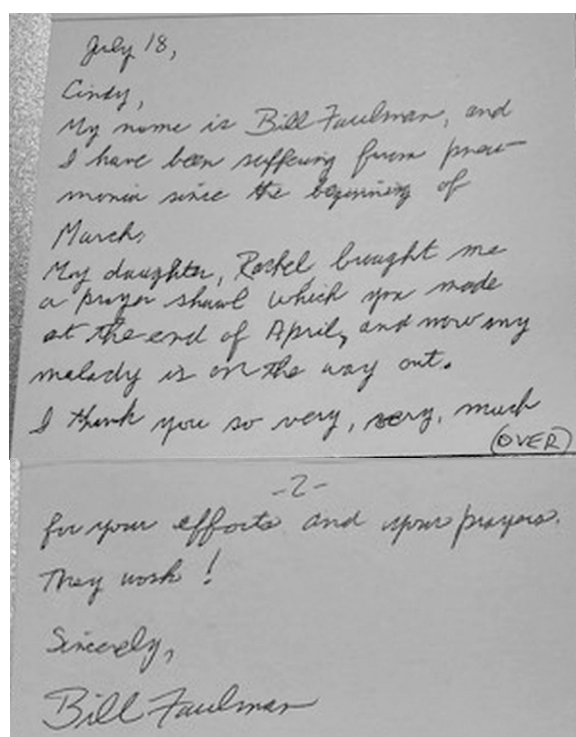 July 18,
Cindy,
My name is Bill Faulman, and
I have been suffering from pneu-
monia since the beginning of
March.
My daughter, Rachel, brought me
a prayer shawl which you made
at the end of April, and now my
malady is on the way out.
I thank you so very, very, much
(OVER)
-2-
for your efforts and your prayers.
They work!
Sincerely,
Bill Faulman